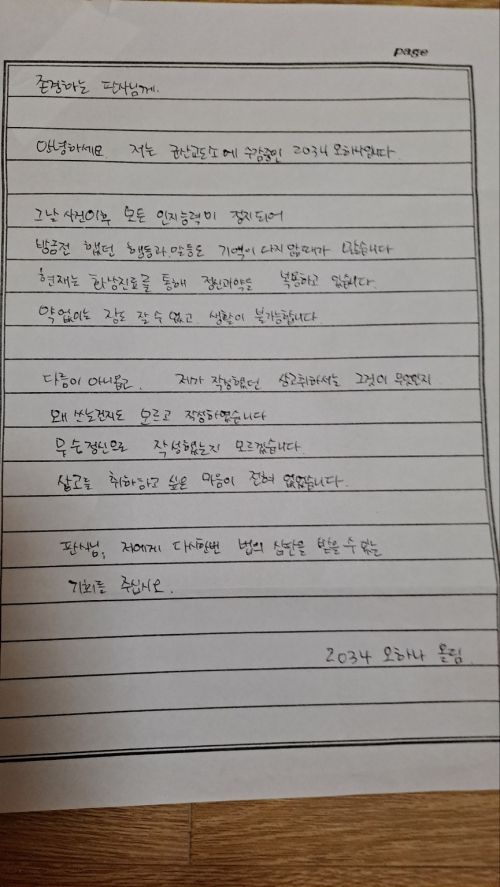 page
존경하는 판사님께.
안녕하세요. 저는 군산교도소에 수감중인 2034 오하나입니다.
그날 사건이후 모든 인지능력이 정지되어
방금전 했던 행동과, 말들도 기억이 나지 않을때가 많습니다
현재는 화상진료를 통해 정신과약을 복용하고 있습니다.
약 없이는 잠도 잘 수 없고 생활이 불가능합니다
다름이 아니옵고. 제가 작성했던 상고취하서는 그것이 무엇인지
왜 쓰는건지도 모르고 작성하였습니다
무슨정신으로 작성했는지 모르겠습니다.
상고를 취하하고 싶은 마음이 전혀 없었습니다.
판사님, 저에게 다시한번 법의 심판을 받을 수 있는
기회를 주십시오.
2034 오하나 올림